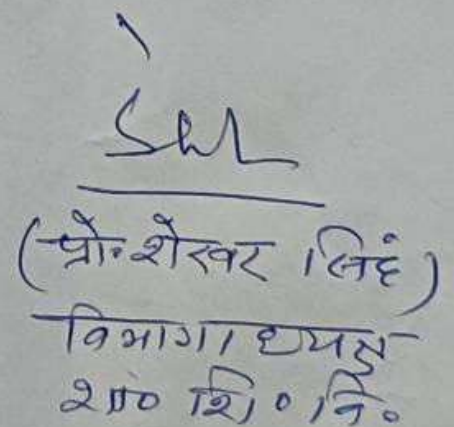 (प्रो० शेखर सिंह)
विभागाध्यक्ष
शा० शि० वि०